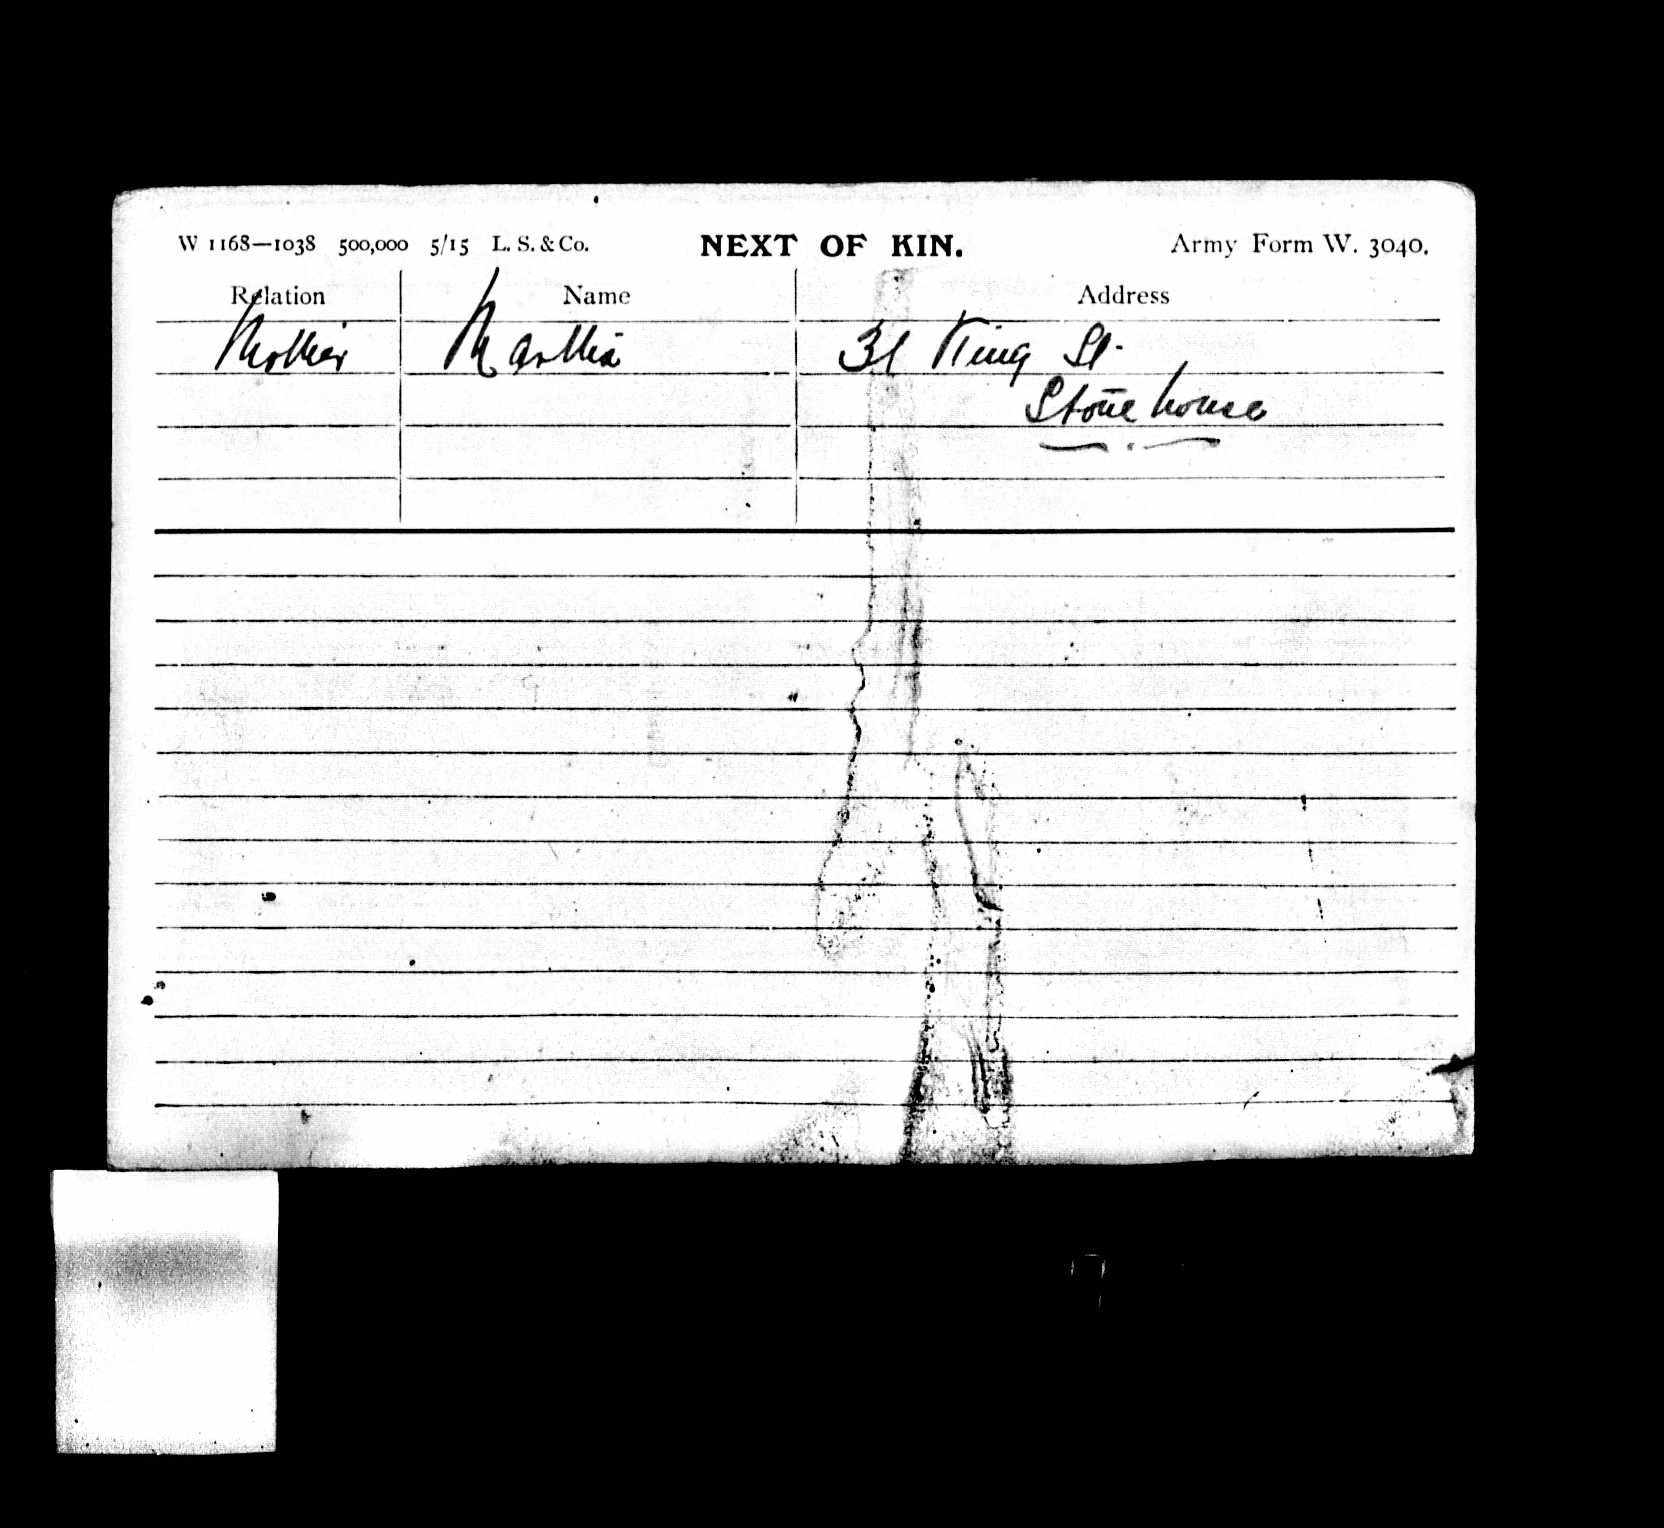 W 1168—1038 500,000 5/15 L. S. & Co. NEXT OF KIN. Army Form W. 3040.
Relation Name Address
Mother Martha 31 King St.
Stonehouse